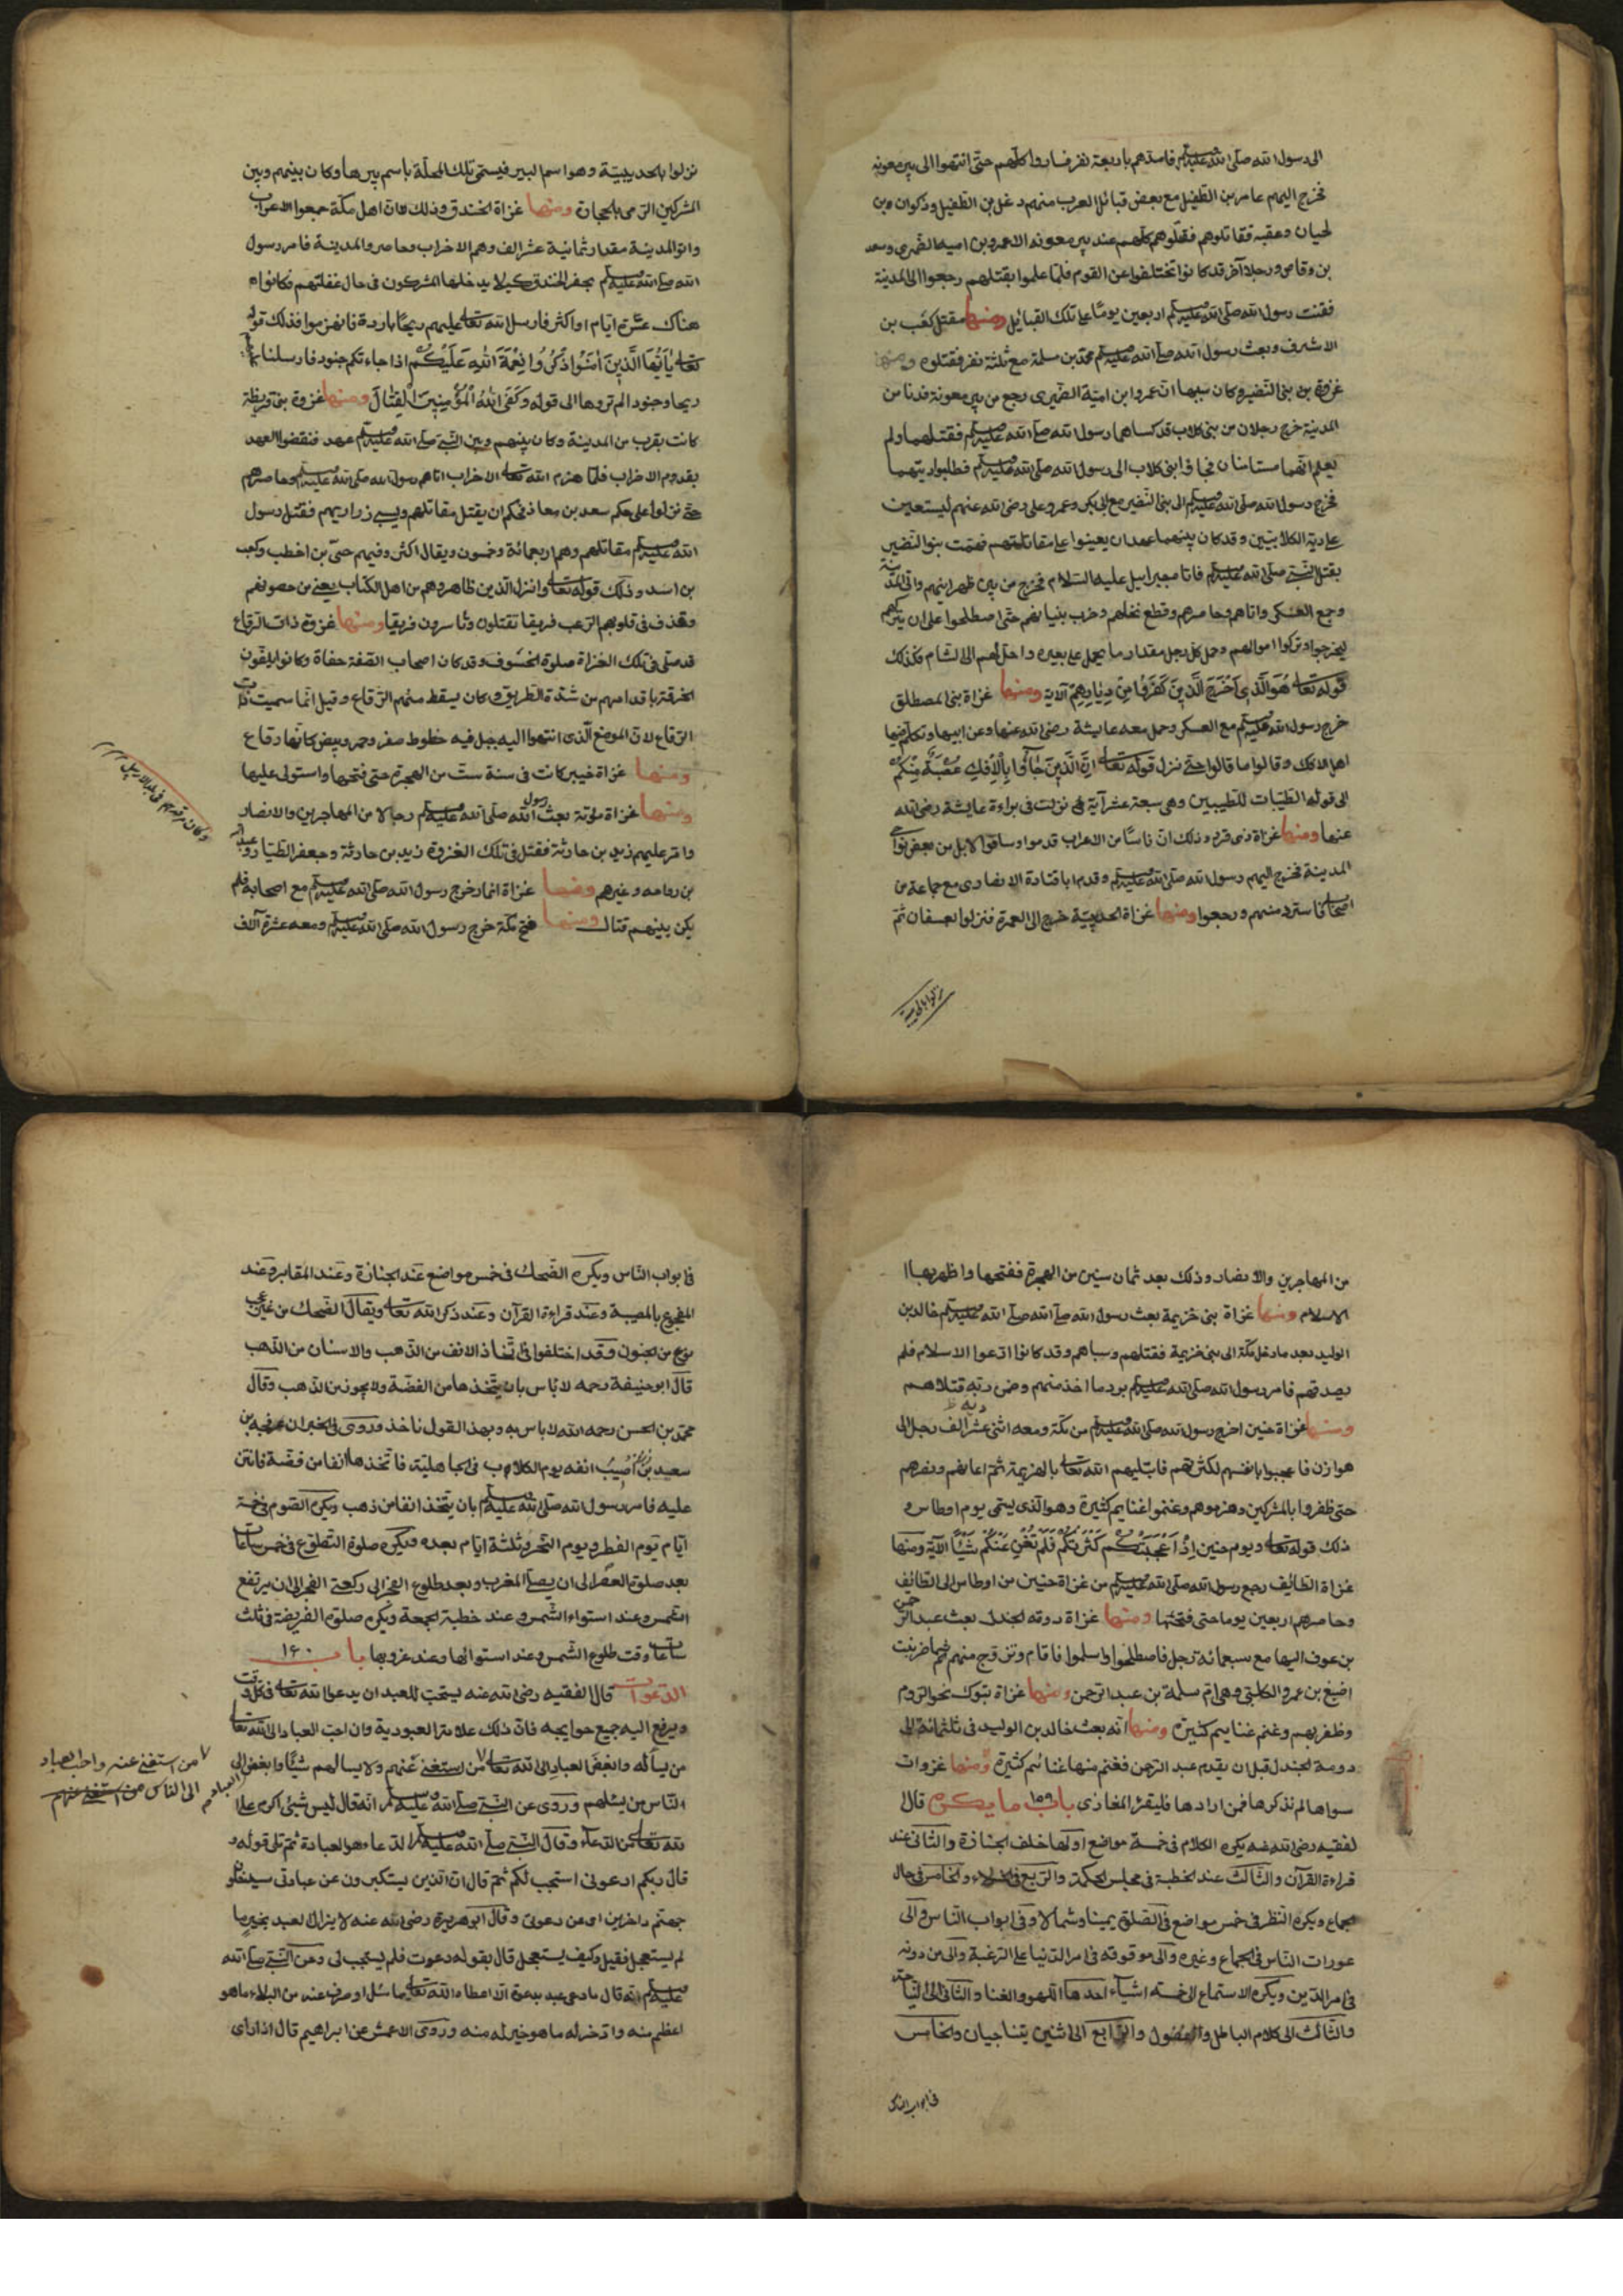 الى رسول الله صلى الله عليه وسلم فامدهم باربعة نفر فساروا كلهم حتى انتهوا الى بير معونه
فخرج اليهم عامر بن الطفيل مع بعض قبائل العرب منهم دغل بن الطفيل وذكوان وبن
لحيان وعقبه فقاتلوهم فقتلوهم كلهم عند بير معونه الا عمرو بن اميه الضمرى وسعد
بن وقاص ورجلا آخر قد كانوا تختلفوا عن القوم فلما علموا بقتلهم رجعوا الى المدينة
فقنت رسول الله صلى الله عليه وسلم اربعين يوما على تلك القبائل ومنها مقتل كعب بن
الاشرف وبعث رسول الله صلى الله عليه وسلم محمد بن مسلمة مع ثلثة نفر فقتلوه ومنها
غزوة بن بنى النضير وكان سببها ان عمروا بن امية الضميرى رجع من بير معونة فدنا من
المدينة خرج رجلان من بنى كلاب قد كساهما رسول الله صلى الله عليه وسلم فقتلهما ولم
يعلم انهما مستامنان فجا بنى كلاب الى رسول الله صلى الله عليه وسلم فطلبوا ديتهما
فخرج رسول الله صلى الله عليه وسلم الى بنى النضير مع ابى بكر وعمر وعلى رضى الله عنهم ليستعين
على دية الكلابيين وقد كان بينهما عهد ان يعينوا على مقاتلتهم فهمت بنو النضير
بقتل النبى صلى الله عليه وسلم فاتا جبرايل عليه السلام فخرج من بين ظهرانيهم واتى المدينة
وجمع العسكر واتاهم وحاصرهم وقطع نخلهم وخرب بنيانهم حتى اصطلحوا على ان يتركهم
ليخرجوا وتركوا اموالهم وحمل كل رجل مقدار ما يحمل على بعيره واجلهم الى الشام فكذلك
قوله تعالى هُوَ الَّذِى اَخْرَجَ الَّذِينَ كَفَرُوا مِنْ دِيَارِهِمْ الآية ومنها غزاة بنى المصطلق
خرج رسول الله عليه وسلم مع العسكر وحمل معه عايشة رضى الله عنها وعن ابيها وتكلم فيها
اهل الافك وقالوا ما قالوا حتى نزل قوله تعالى اِنَّ الَّذِينَ جَاؤُا بِالْاِفْكِ عُصْبَةٌ مِنْكُمْ
الى قوله الطيبات للطيبين وهى سبعة عشر آية نزلت فى براءة عايشة رضى الله
عنها ومنها غزاة ذى قرد وذلك ان ناسا من الاعراب قدموا وساقوا الابل من بعض نواحى
المدينة فخرج اليهم رسول الله صلى الله عليه وسلم وقدم ابا قتادة الانصارى مع جماعة من
اصحابه فاسترد منهم ورجعوا ومنها غزاة الحديبية خرج الى العمرة فنزلوا بعسفان ثم
نزلوا بالحديبية
نزلوا بالحديبية وهو اسم البير فيسمى تلك المحلة باسم بيرها وكان بينهم وبين
المشركين الرمى بالحجارة ومنها غزاة الخندق وذلك لان اهل مكة جمعوا الاعراب
واتوا المدينة مقدار ثمانية عشر الف وهم الاحزاب وحاصروا المدينة فامر رسول
الله صلى الله عليه وسلم بحفر الخندق كيلا يدخلها المشركون فى حال غفلتهم فكانوا
هناك عشرة ايام او اكثر فارسل الله تعالى عليهم ريحا باردة فانهزموا فذلك قوله
تعالى يَاَيُّهَا الَّذِينَ اٰمَنُوا اذْكُرُوا نِعْمَةَ اللهِ عَلَيْكُمْ اذا جاءتكم جنود فارسلنا عليهم
ريحا وجنودا لم تروها الى قوله وَكَفَى اللهُ الْمُؤْمِنِينَ الْقِتَالَ ومنها غزوة بنى قريظة
كانت بقرب من المدينة وكان بينهم وبين النبى صلى الله عليه وسلم عهد فنقضوا العهد
بقدوم الاحزاب فلما هزم الله تعالى الاحزاب اتاهم رسول الله صلى الله عليه وسلم وحاصرهم
حتى نزلوا على حكم سعد بن معاذ فحكم ان يقتل مقاتلهم ويسبى زراريهم فقتل رسول
الله عليه وسلم مقاتلهم وهم اربعمائة وخمسون ويقال اكثر وفيهم حيى بن اخطب وكعب
بن اسد وذلك قوله تعالى وانزل الذين ظاهروهم من اهل الكتاب يعنى من حصونهم
وقذف فى قلوبهم الرعب فريقا تقتلون وتاسرون فريقا ومنها غزوة ذات الرقاع
قد صلى فى تلك الغزاة صلوة الخسوف وقد كان اصحاب الصفة حفاة وكانوا يلفون
الخرقة باقدامهم من شدة الطريق وكان يسقط منهم الرقاع وقيل انما سميت ذات
الرقاع لان الموضع الذى انتهوا اليه جبل فيه خطوط صفر وحمر وبيض كانها رقاع
ومنها غزاة خيبر كانت فى سنة ست من الهجرة حتى فتحها واستولى عليها
ومنها غزاة مؤتة بعث رسول الله صلى الله عليه وسلم رجالا من المهاجرين والانصار
وامر عليهم زيد بن حارثة فقتل فى تلك الغزوة زيد بن حارثة وجعفر الطيار وعبد الله
بن رواحه وغيرهم ومنها غزاة انمار خرج رسول الله صلى الله عليه وسلم مع اصحابه فلم
يكن بينهم قتال ومنها فتح مكة خرج رسول الله صلى الله عليه وسلم ومعه عشرة آلاف
من المهاجرين والانصار وذلك بعد ثمان سنين من الهجرة ففتحها واظهر بها
الاسلام ومنها غزاة بنى خزيمة بعث رسول الله صلى الله صلى الله عليه وسلم خالد بن
الوليد بعد ما دخل مكة الى بنى خزيمة فقتلهم وسباهم وقد كانوا ادعوا الاسلام فلم
يصدقهم فامر رسول الله صلى الله عليه وسلم برد ما اخذ منهم وضمن دية قتلاهم
ومنها غزاة حنين اخرج رسول الله صلى الله عليه وسلم من مكة ومعه اثنى عشر الف رجل الى
هوازن فاعجبوا بانفسهم لكثرتهم فابتليهم الله تعالى بالهزيمة ثم اعانهم ونصرهم
حتى ظفروا بالمشركين وهزموهم وغنموا غنايم كثيرة وهو الذى يسمى يوم اوطاس و
ذلك قوله تعالى ويوم حنين اِذْ اَعْجَبَتْكُمْ كَثْرَتُكُمْ فَلَمْ تُغْنِ عَنْكُمْ شَيْئًا الآية ومنها
غزاة الطائف رجع رسول الله صلى الله عليه وسلم من غزاة حنين من اوطاس الى الطائف
وحاصرهم اربعين يوما حتى فتحها ومنها غزاة دومة الجندل بعث عبد الرحمن
بن عوف اليها مع سبعمائة رجل فاصطلحوا واسلموا فاقام وتزوج منهم تماضر بنت
اصبغ بن عمرو الكلبى وهى ام سلمة بن عبد الرحمن ومنها غزاة تبوك نحو الروم
وظفر بهم وغنم غنايم كثيرة ومنها انه بعث خالد بن الوليد فى ثلثمائة الى
دومة الجندل قبل ان يقدم عبد الرحمن فغنم منها غنائم كثيرة ومنها غزوات
سواها لم نذكرها فمن ارادها فليقرأ المغازى باب ١٥٩ ما يكره قال
لفقيه رضى الله عنه يكره الكلام فى خمسة مواضع اولها خلف الجنازة والثانى عند
قراءة القرآن والثالث عند الخطبة فى مجلس الحكمة والرابع فى الخلاء والخامس فى حال
جماع ويكره النظر فى خمس مواضع فى الصلوة يمينا وشمالا وفى ابواب الناس والى
عورات الناس فى الجماع وغيره والى موقوفته فى امر الدنيا على الرغبة والى من دونه
فى امر الدين ويكره الاستماع الى خمسة اشياء احدها اللهو والغنا والثانى الى النياحة
والثالث الى كلام الباطل والفضول والرابع الى اثنين يتناجيان والخامس
فى ابواب الناس
فى ابواب الناس ويكره الضحك فى خمس مواضع عند الجنازة وعند المقابر وعند
المفجوع بالمصيبة وعند قراءة القرآن وعند ذكر الله تعالى ويقال الضحك من غير عجب
نوع من الجنون وقد اختلفوا فى اتخاذ الانف من الذهب والاسنان من الذهب
قال ابو حنيفة رحمه لا باس بان يتخذها من الفضة ولا يجوز من الذهب وقال
محمد بن الحسن رحمه الله لا باس به وبهذا القول ناخذ وروى فى الخبر ان عرفجه بن
سعيد اصيب انفه يوم الكلاب فى الجاهلية فاتخذها انفا من فضة فانتن
عليه فامر رسول الله صلى الله عليه وسلم بان يتخذ انفا من ذهب ويكره الصوم فى خمسة
ايام يوم الفطر ويوم النحر وثلثة ايام بعده ويكره صلوة التطوع فى خمس ساعات
بعد صلوة العصر الى ان يصلى المغرب وبعد طلوع الفجر الى ركعتى الفجر الى ان يرتفع
الشمس وعند استواء الشمس وعند خطبة الجمعة ويكره صلوة الفريضة فى ثلث
ساعات وقت طلوع الشمس وعند استوائها وعند غروبها باب ١٦٠
الدعوات قال الفقيه رضى الله عنه يستحب للعبد ان يدعوا الله تعالى فى كل وقت
ويرفع اليه جميع حوايجه فان ذلك علامة العبودية وان احب العباد الى الله تعالى
من يسأله وابغض العباد الى الله تعالى من استغنى عنهم ولا يسالهم شيئا وابغض الى
من استغنى عنه واحب العباد
الى الناس من استغنى عنهم
الناس من يسئلهم وروى عن النبى صلى الله عليه وسلم انه قال ليس شئ اكرم على
الله تعالى من الدعاء وقال النبى صلى الله عليه وسلم الدعاء هو العبادة ثم تلى قوله و
قال ربكم ادعونى استجب لكم ثم قال ان الذين يستكبرون عن عبادتى سيدخلون
جهنم داخرين اى عن دعوتى وقال ابو هريرة رضى الله عنه لا يزال العبد بخير ما
لم يستعجل فقيل وكيف يستعجل قال بقوله دعوت فلم يستجب لى وعن النبى صلى الله
عليه وسلم انه قال ما دعى عبد بدعوة الا اعطاه الله تعالى ما سئل او صرف عنه من البلاء ما هو
اعظم منه وادخر له ما هو خير له منه وروى الاعمش عن ابراهيم قال اذا راى